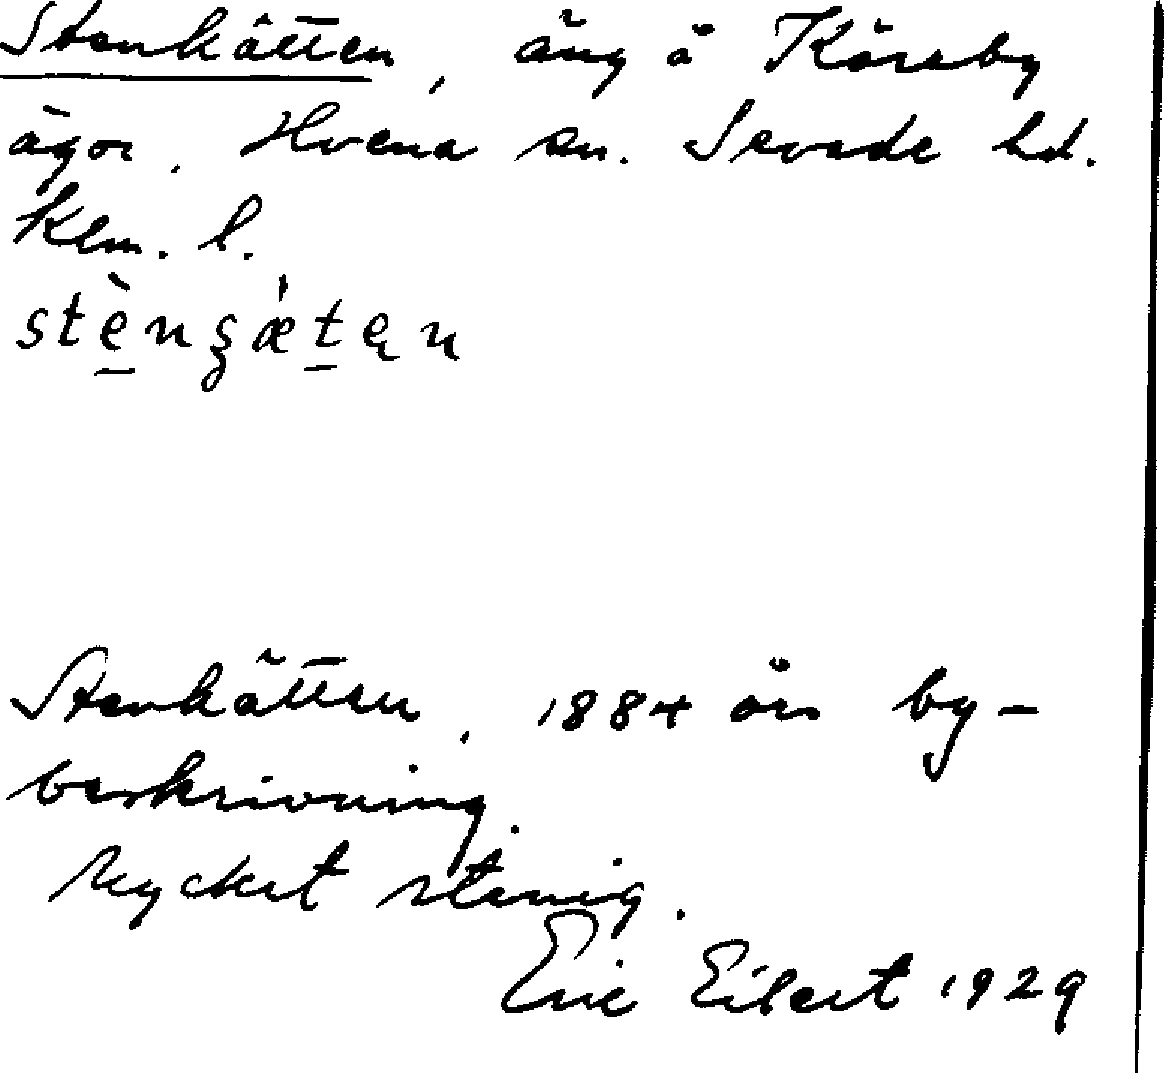 Stenkätten, äng å Kåreby
ägor. Hvena sn. Sevede hd.
Klm. l.
Stenkätten, 1884 års by-
beskrivning.
Mycket stenig.
Eric Eilert 1929